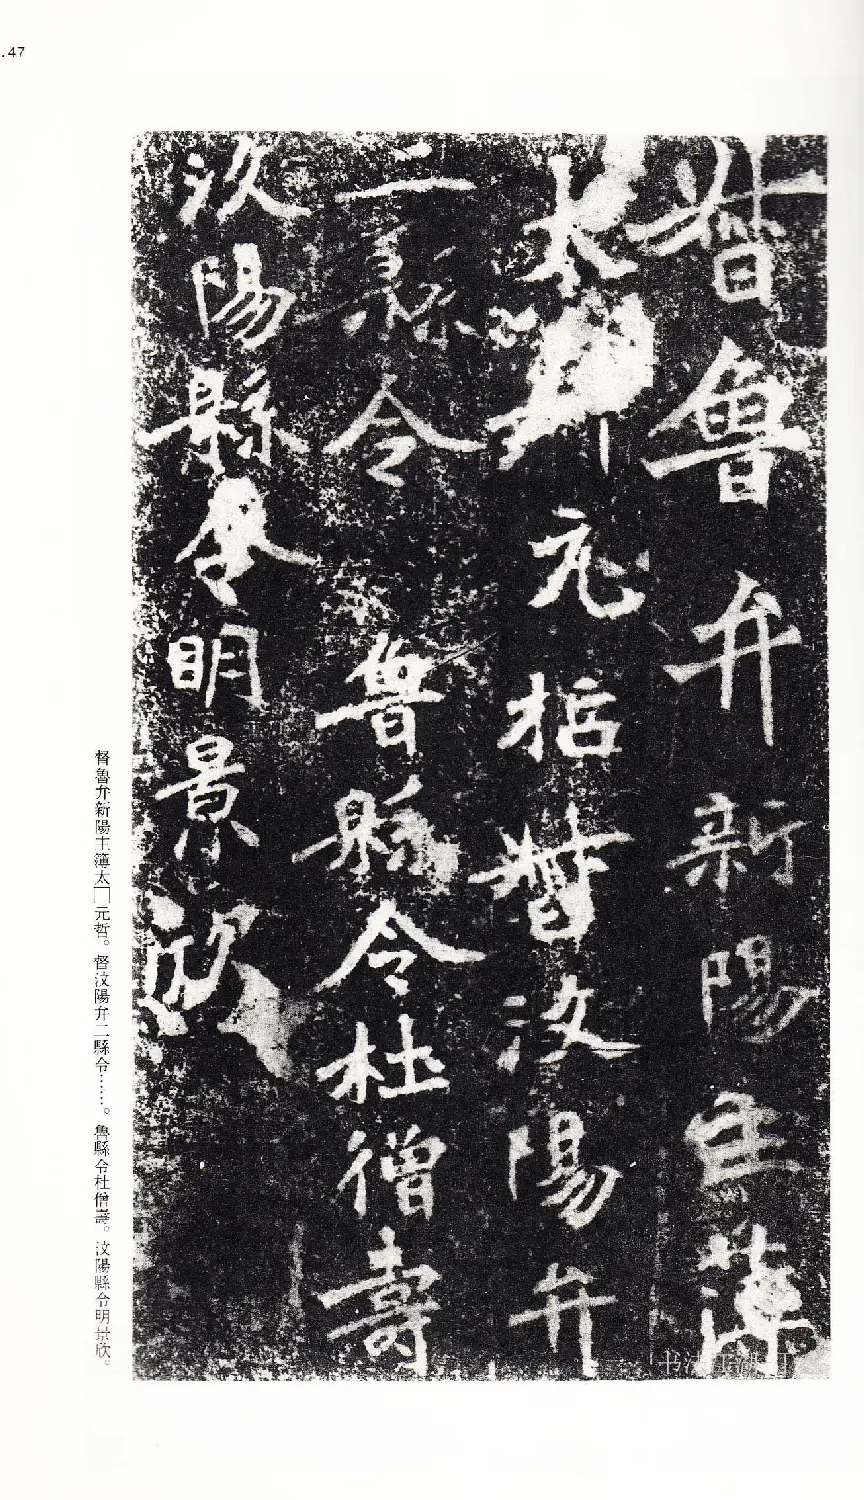 .47
督魯弁新陽主簿
太 元哲督汶陽弁
二縣令 魯縣令杜僧壽
汶陽縣令明景欣
督魯弁新陽主簿太□元哲。督汶陽弁二縣令……。魯縣令杜僧壽。汶陽縣令明景欣。